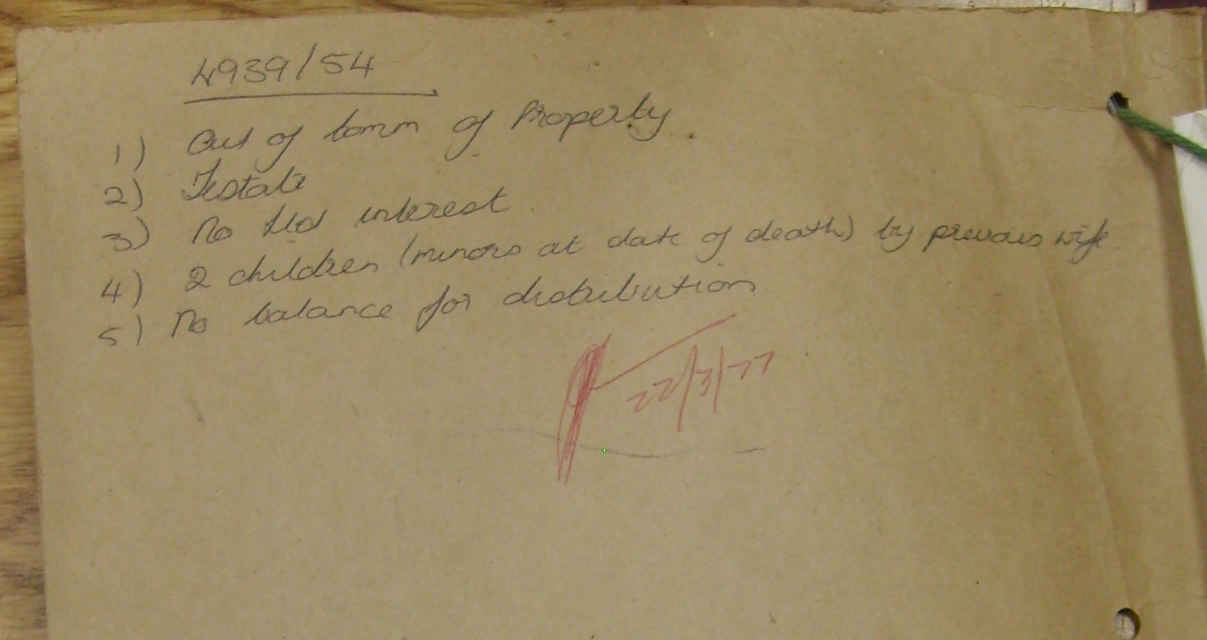 4939/54
1) Out of Comm of Property.
2) Testate
3) No ltd interest.
4) 2 children (minors at date of death) by previous wife
5) No balance for distribution
22/3/77